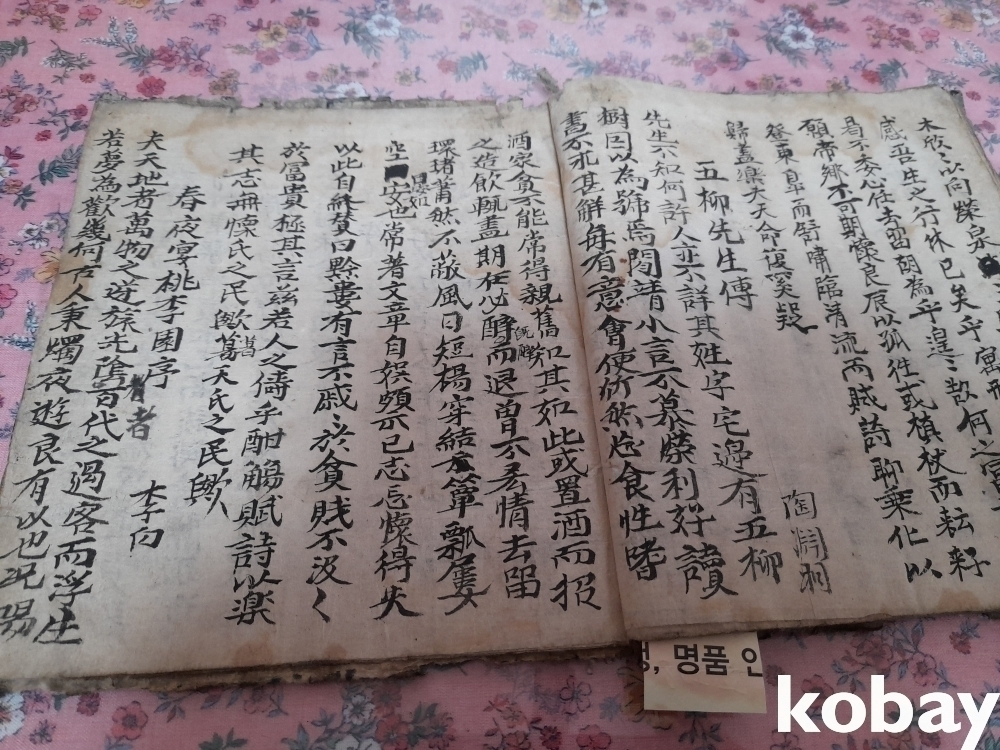 木欣〻以向榮泉
感吾生之行休已矣乎寓形
曷不委心任去留胡為乎皇〻欲何之富
願帝鄉不可期懷良辰以孤往或植杖而耘耔
登東皐而舒嘯臨清流而賦詩聊乘化以
歸盡樂夫天命復奚疑
五柳先生傳 陶淵明
先生不知何許人亦不詳其姓字宅邊有五柳
樹因以為號焉閑靖小言不慕榮利好讀
書不求甚解每有意會便欣然忘食性嗜
酒家貧不能常得親舊知其如此或置酒而招
之造飲輒盡期在必醉既醉而退曾不吝情去留
環堵蕭然不蔽風日短楊穿結簞瓢屢
空晏如也常著文章自娛頗示己志忘懷得失
以此自終贊曰黔婁有言不戚〻於貧賤不汲〻
於富貴極其言茲若人之儔乎酣觴賦詩以樂
其志無懷氏之民歟葛天氏之民歟
春夜宴桃李園序 李白
夫天地者萬物之逆旅光陰者百代之過客而浮生
若夢為歡幾何古人秉燭夜遊良有以也況陽
, 명품 인
kobay